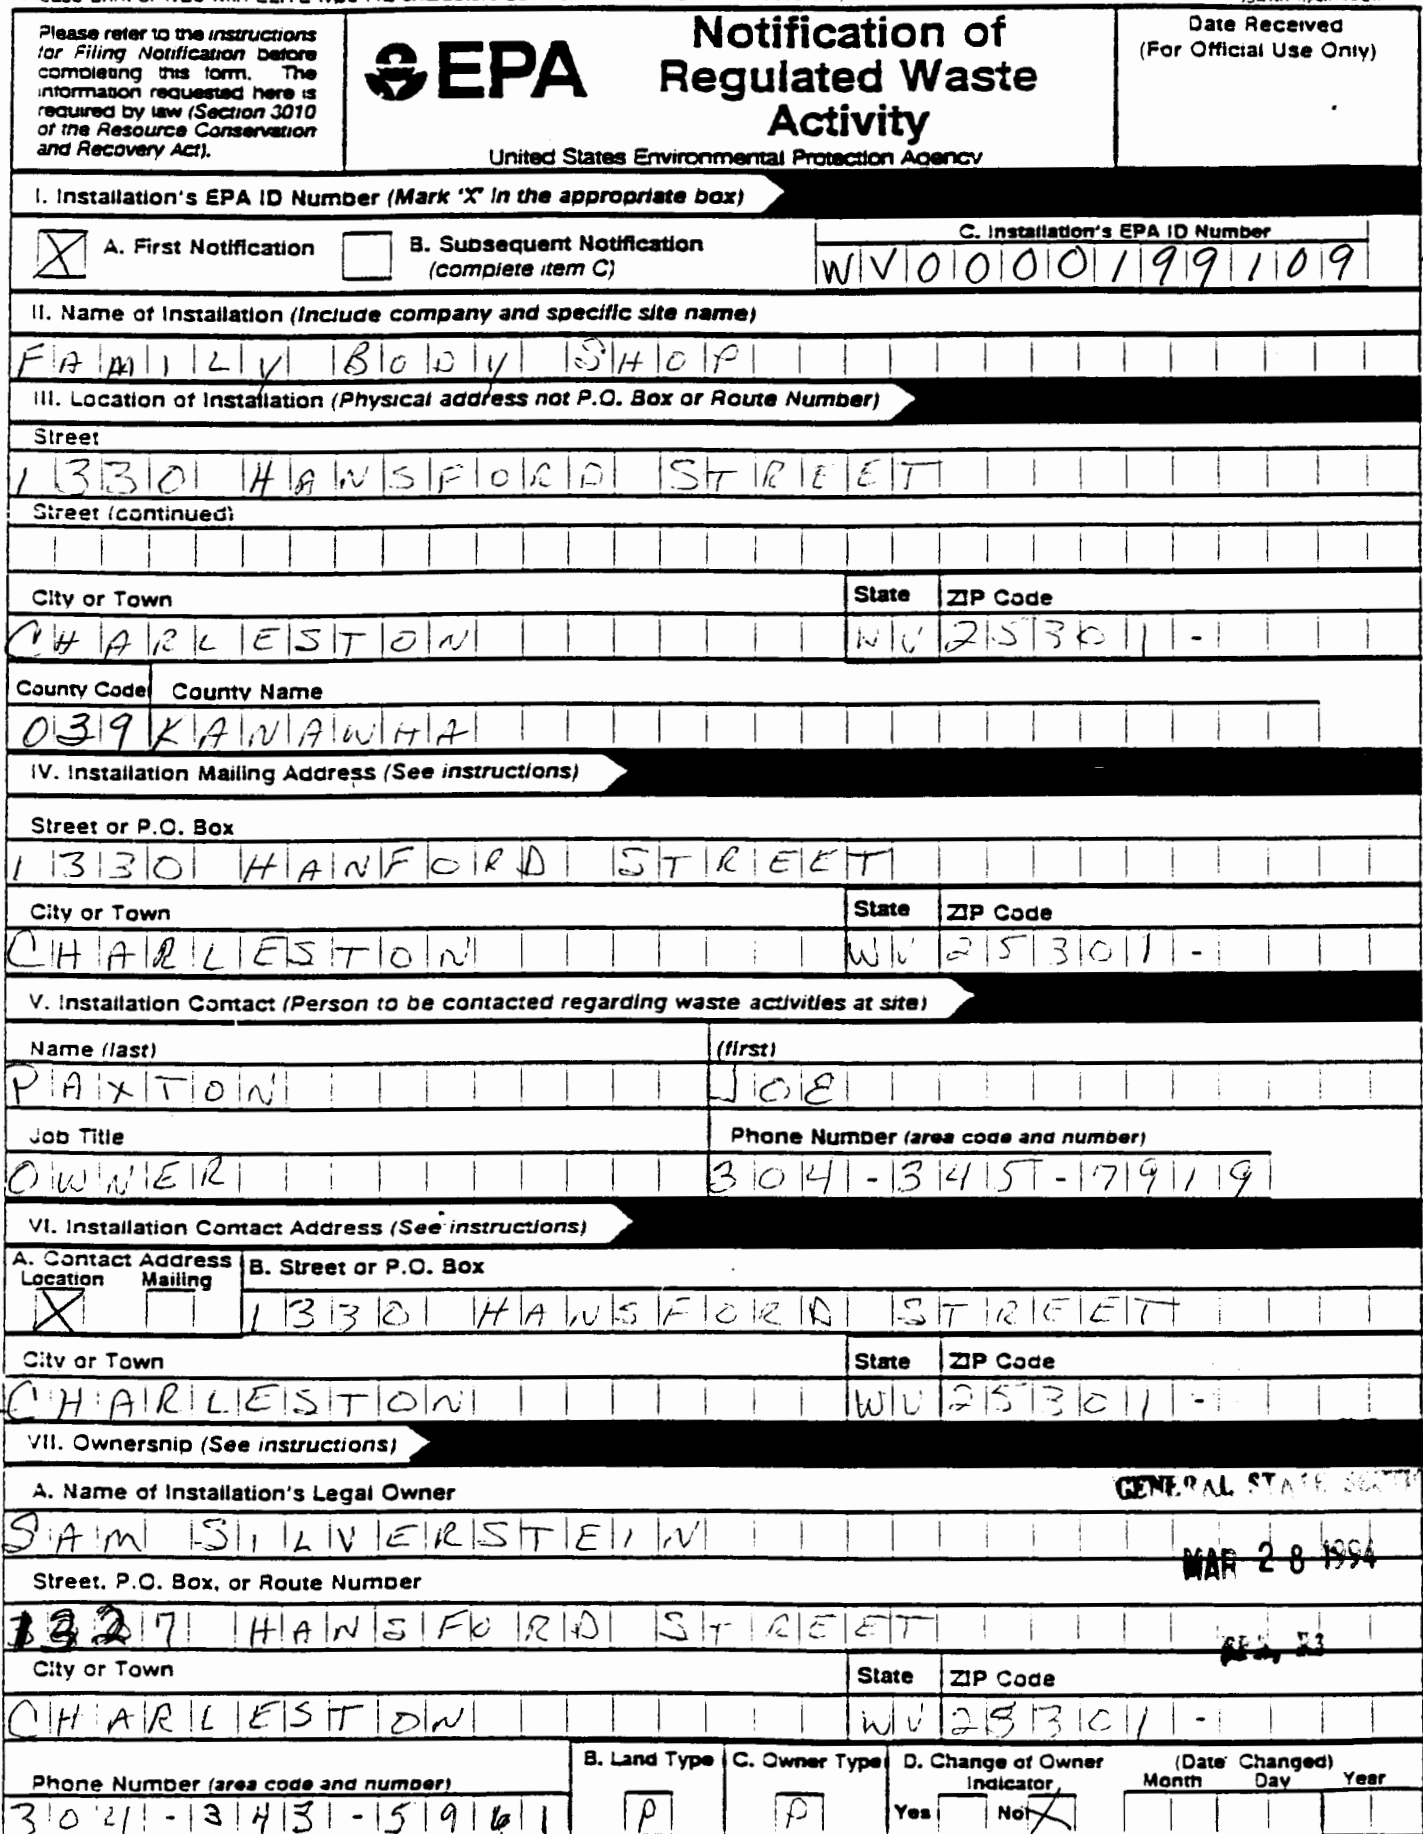 Please refer to the instructions
for Filing Notification before
completing this form. The
information requested here is
required by law (Section 3010
of the Resource Conservation
and Recovery Act).
EPA
Notification of
Regulated Waste
Activity
United States Environmental Protection Agency
Date Received
(For Official Use Only)
I. Installation's EPA ID Number (Mark 'X' in the appropriate box)
X A. First Notification
B. Subsequent Notification
(complete item C)
C. Installation's EPA ID Number
WV0000199109
II. Name of Installation (Include company and specific site name)
FAMILY BODY SHOP
III. Location of Installation (Physical address not P.O. Box or Route Number)
Street
1330 HANSFORD STREET
Street (continued)
City or Town State ZIP Code
CHARLESTON WV 25301-
County Code County Name
039 KANAWHA
IV. Installation Mailing Address (See instructions)
Street or P.O. Box
1330 HANFORD STREET
City or Town State ZIP Code
CHARLESTON WV 25301-
V. Installation Contact (Person to be contacted regarding waste activities at site)
Name (last) (first)
PAXTON JOE
Job Title Phone Number (area code and number)
OWNER 304-345-7919
VI. Installation Contact Address (See instructions)
A. Contact Address B. Street or P.O. Box
Location Mailing
X 1330 HANSFORD STREET
City or Town State ZIP Code
CHARLESTON WV 25301-
VII. Ownership (See instructions)
A. Name of Installation's Legal Owner
GENERAL STATE
SAM SILVERSTEIN
MAR 28 1994
Street, P.O. Box, or Route Number
1327 HANSFORD STREET
City or Town State ZIP Code
CHARLESTON WV 25301-
Phone Number (area code and number) B. Land Type C. Owner Type D. Change of Owner Indicator (Date Changed) Month Day Year
304-343-5961 P P Yes No X